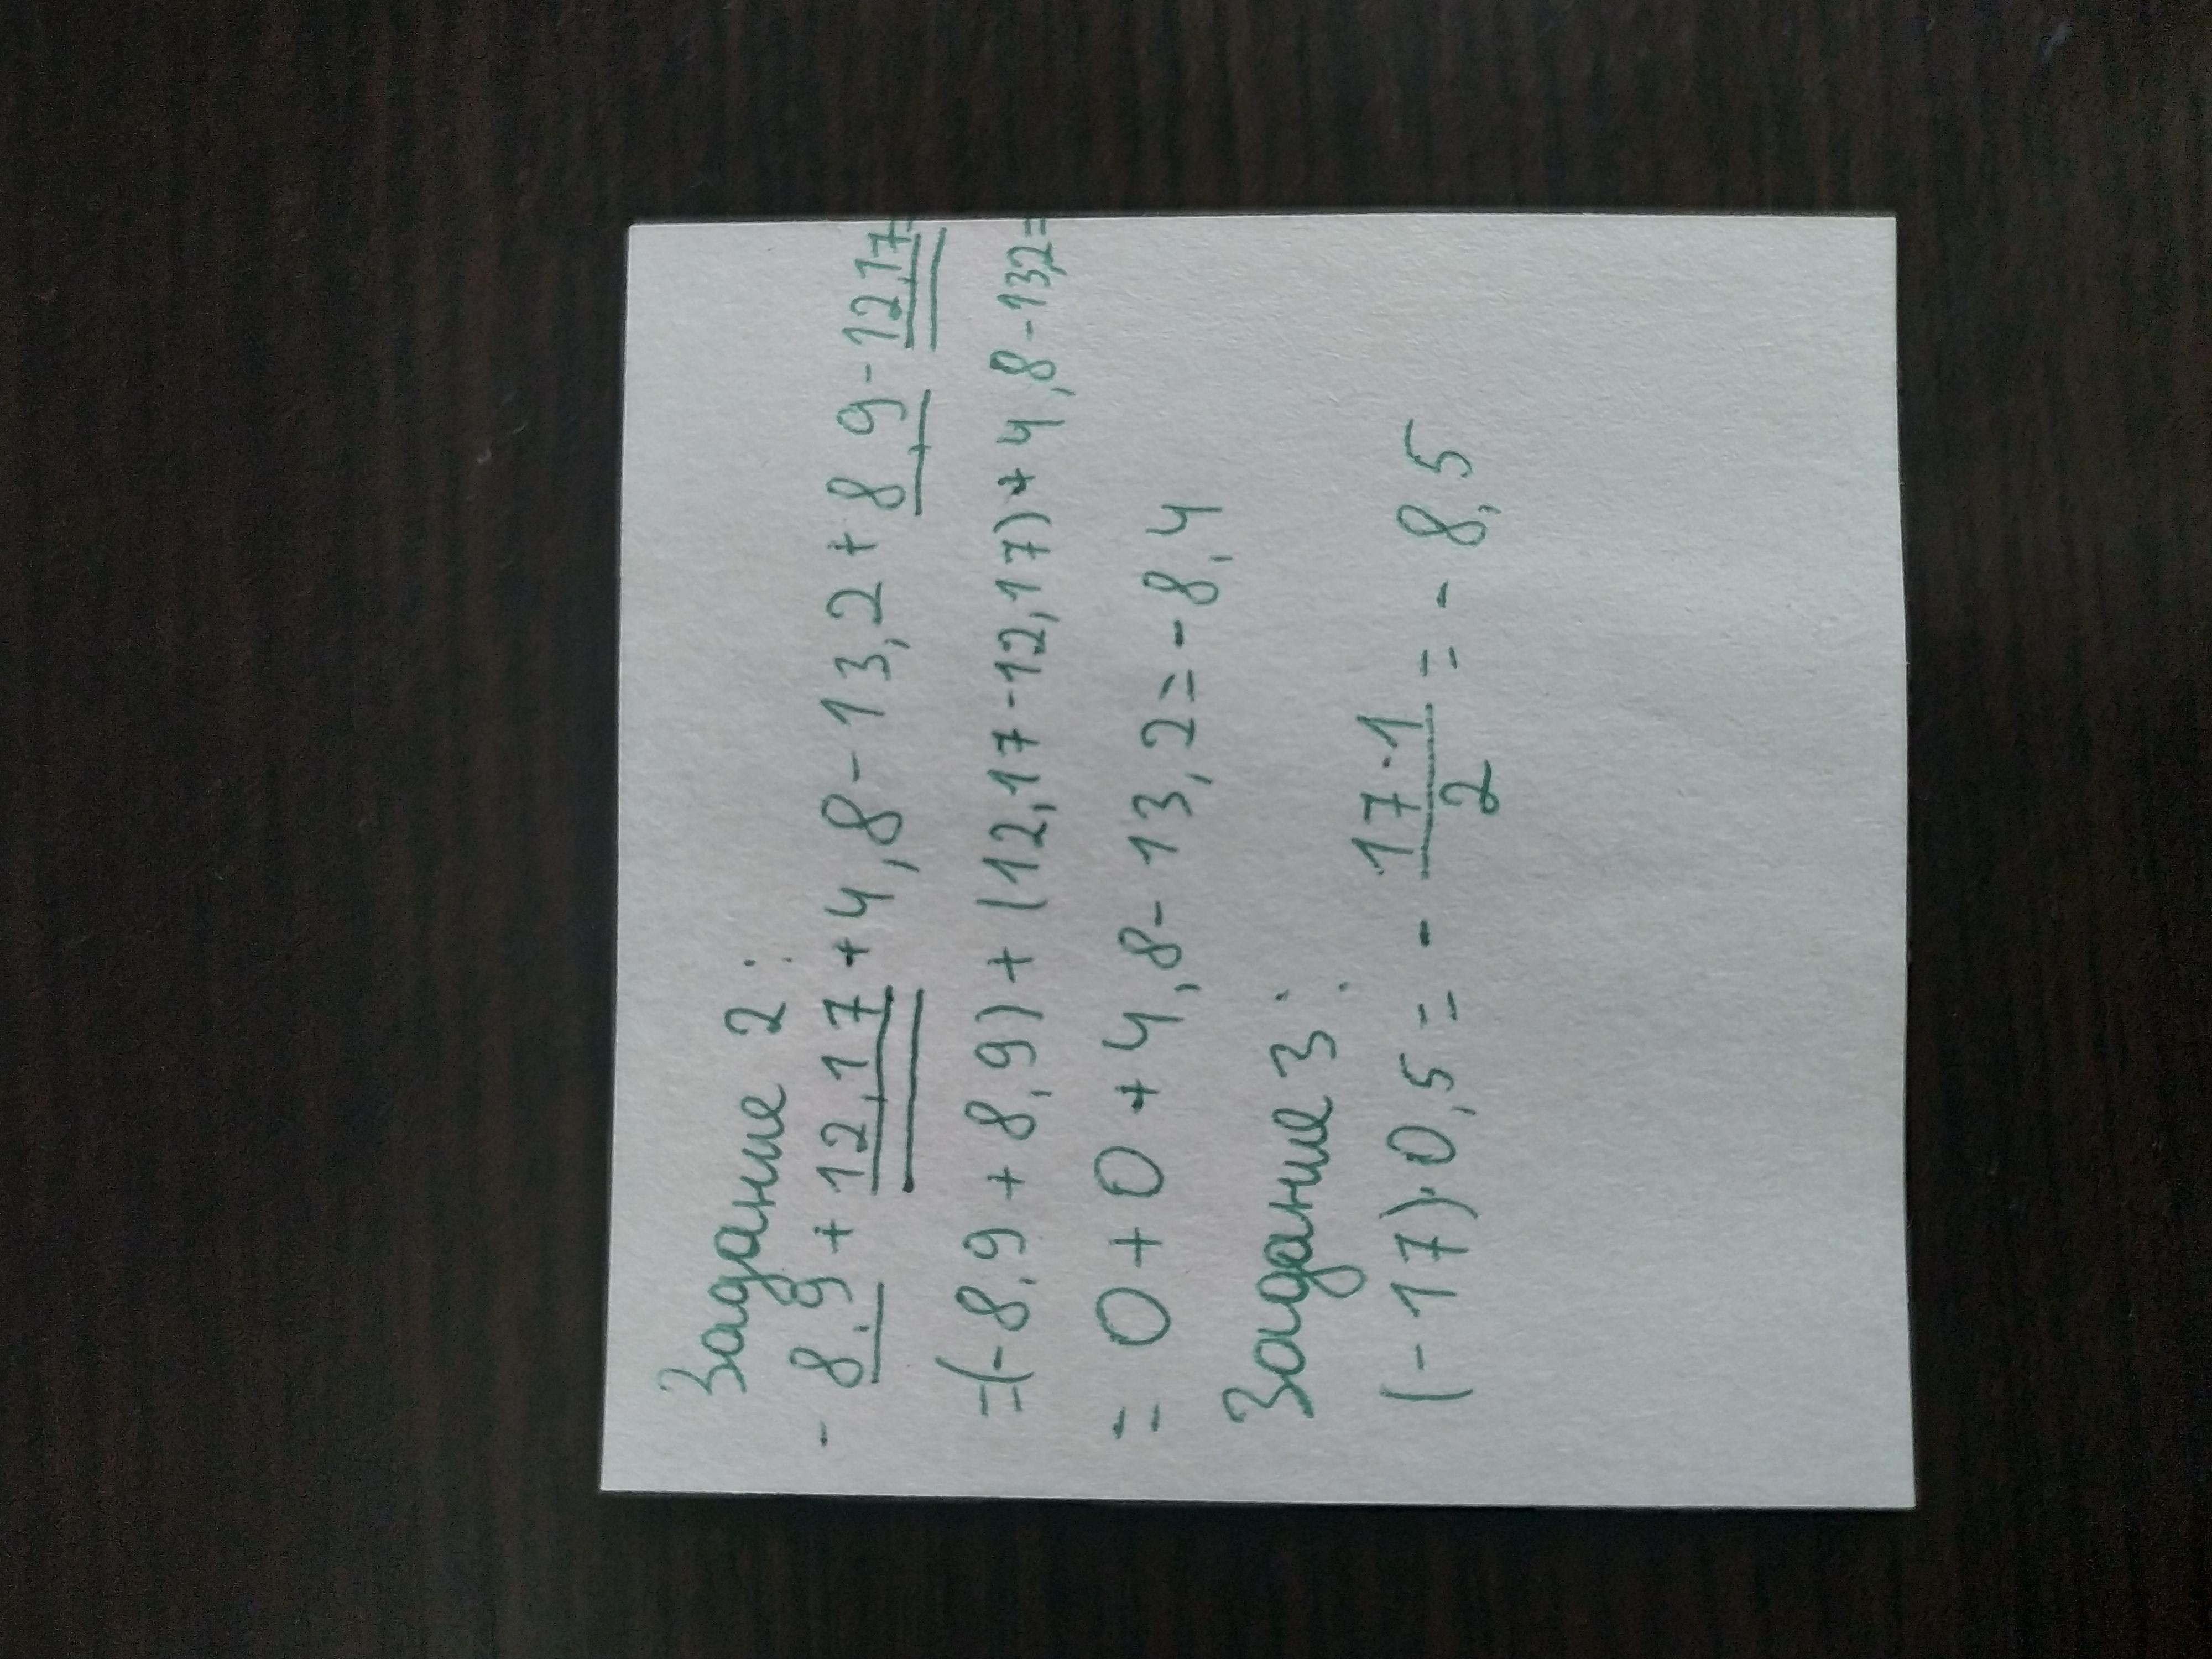 Задание 2:
- 8,9 + 12,17 + 4,8 - 13,2 + 8,9 - 12,17=
=(-8,9 + 8,9) + (12,17-12,17) + 4,8-13,2=
= 0 + 0 + 4,8 - 13,2 = - 8,4
Задание 3:
(-17)·0,5 = - 17·1/2 = - 8,5